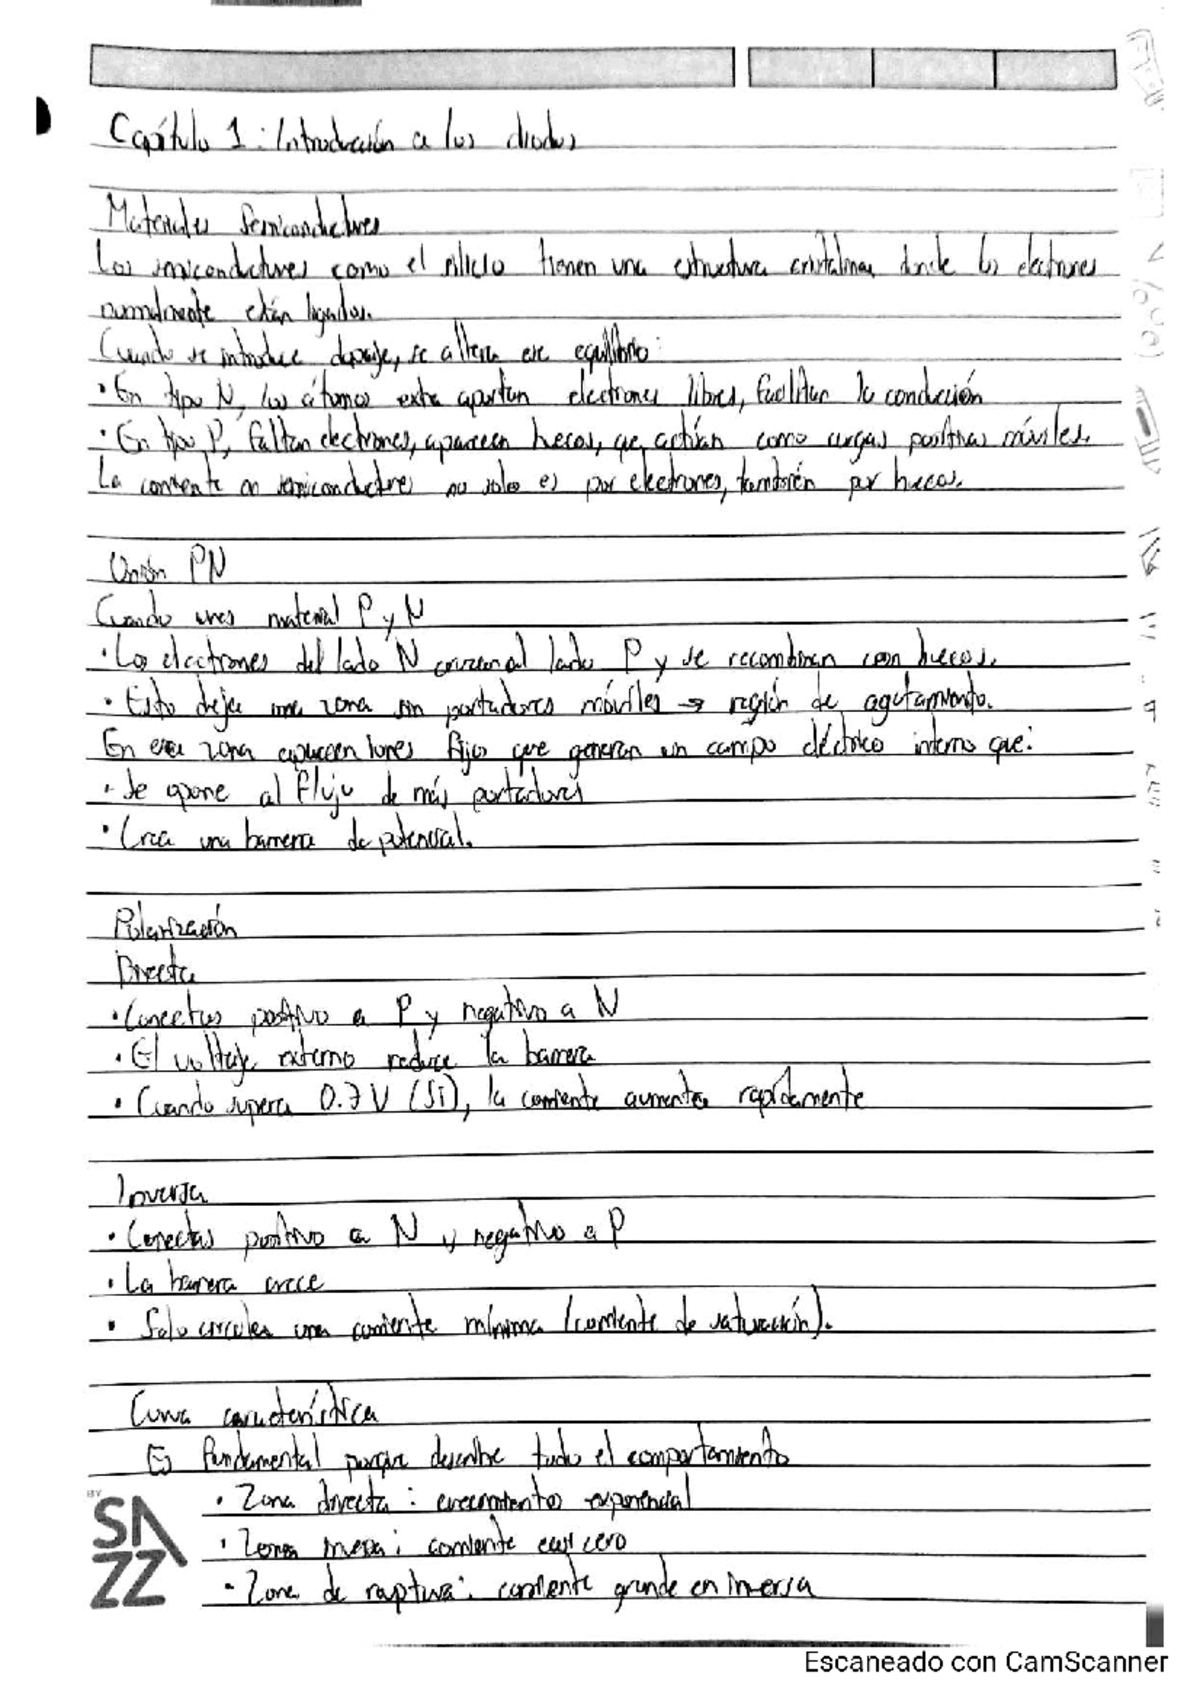 Capítulo 1: Introducción a los diodos
Materiales Semiconductores
Los semiconductores como el silicio tienen una estructura cristalina, donde los electrones
normalmente están ligados.
Cuando se introduce dopaje, se altera ese equilibrio:
· En tipo N, los átomos extra aportan electrones libres, facilitan la conducción
· En tipo P, faltan electrones, aparecen huecos, que actúan como cargas positivas móviles.
La corriente en semiconductores no solo es por electrones, también por huecos.
Unión PN
Cuando unes material P y N
· Los electrones del lado N cruzan al lado P y se recombinan con huecos.
· Esto deja una zona sin portadores móviles → región de agotamiento.
En esa zona aparecen iones fijos que generan un campo eléctrico interno que:
· Se opone al flujo de más portadores
· Crea una barrera de potencial.
Polarización
Directa
· Conectas positivo a P y negativo a N
· El voltaje externo reduce la barrera
· Cuando supera 0.7 V (Si), la corriente aumenta rapídamente
Inversa
· Conectas positivo a N y negativo a P
· La barrera crece
· Solo circula una corriente mínima (corriente de saturación).
Curva característica
Es fundamental porque describe todo el comportamiento
· Zona directa: crecimiento exponencial
· Zona inversa: corriente casi cero
· Zona de ruptura: corriente grande en inversa
BY
SA
ZZ
Escaneado con CamScanner